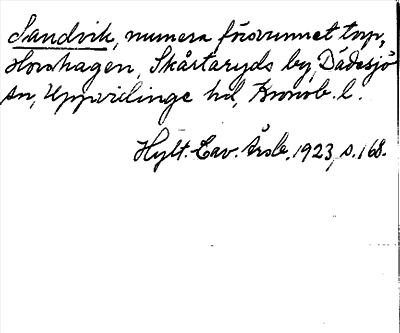 Sandvik, numera försvunnet torp,
Horshagen, Skårtaryds by, Dädesjö
sn, Uppvidinge hd, Kronob. l.
Hylt.-Cav. Årsb. 1923, s. 168.